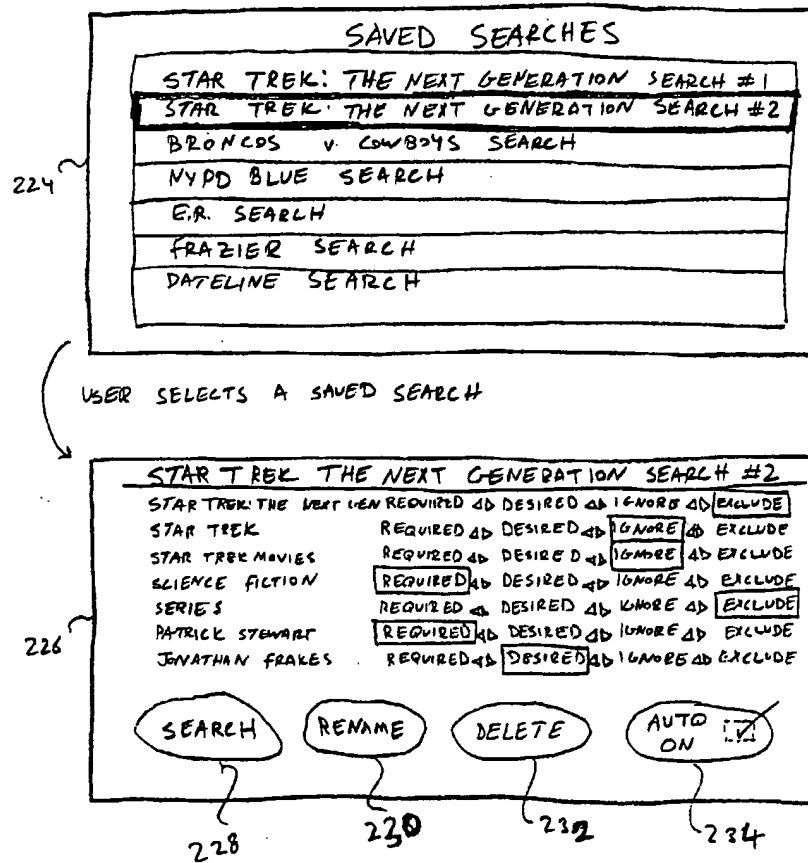 SAVED SEARCHES
STAR TREK: THE NEXT GENERATION SEARCH #1
STAR TREK: THE NEXT GENERATION SEARCH #2
BRONCOS v. COWBOYS SEARCH
224
NYPD BLUE SEARCH
E.R. SEARCH
FRAZIER SEARCH
DATELINE SEARCH
USER SELECTS A SAVED SEARCH
STAR TREK THE NEXT GENERATION SEARCH #2
STAR TREK: THE NEXT GEN REQUIRED DESIRED IGNORE EXCLUDE
STAR TREK REQUIRED DESIRED IGNORE EXCLUDE
STAR TREK MOVIES REQUIRED DESIRED IGNORE EXCLUDE
SCIENCE FICTION REQUIRED DESIRED IGNORE EXCLUDE
SERIES REQUIRED DESIRED IGNORE EXCLUDE
226
PATRICK STEWART REQUIRED DESIRED IGNORE EXCLUDE
JONATHAN FRAKES REQUIRED DESIRED IGNORE EXCLUDE
SEARCH RENAME DELETE AUTO ON
228 230 232 234